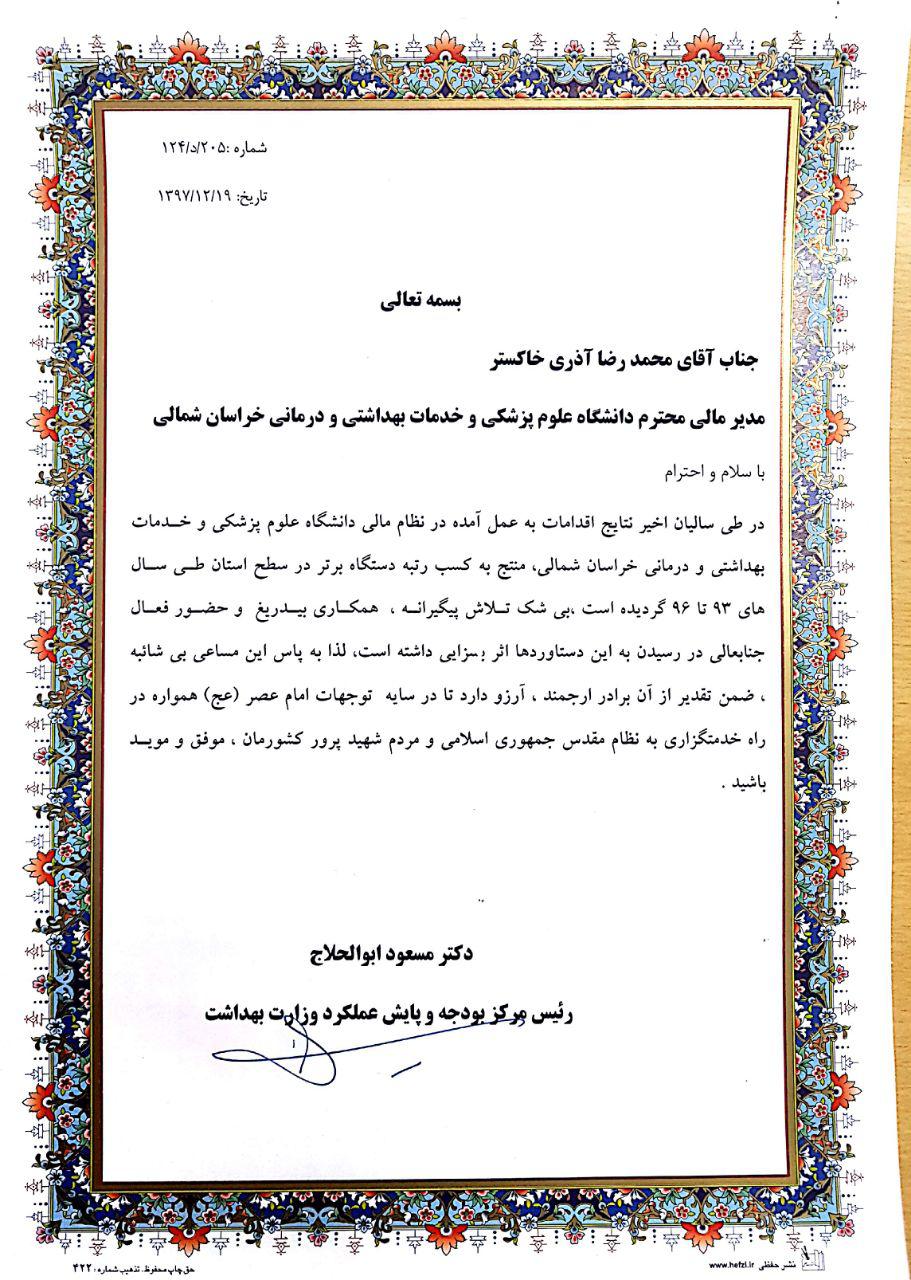 شماره :۱۲۴/د/۲۰۵
تاریخ: ۱۳۹۷/۱۲/۱۹
بسمه تعالی
جناب آقای محمد رضا آذری خاکستر
مدیر مالی محترم دانشگاه علوم پزشکی و خدمات بهداشتی و درمانی خراسان شمالی
با سلام و احترام
در طی سالیان اخیر نتایج اقدامات به عمل آمده در نظام مالی دانشگاه علوم پزشکی و خـدمات
بهداشتی و درمانی خراسان شمالی، منتج به کسب رتبه دستگاه برتر در سطح استان طـی سـال
های ۹۳ تا ۹۶ گردیده است ،بی شک تـلاش پیگیرانـه ، همکـاری بیـدریغ و حضـور فعـال
جنابعالی در رسیدن به این دستاوردها اثر بسزایی داشته است، لذا به پاس این مساعی بی شائبه
، ضمن تقدیر از آن برادر ارجمند ، آرزو دارد تا در سایه توجهات امام عصر (عج) همواره در
راه خدمتگزاری به نظام مقدس جمهوری اسلامی و مردم شهید پرور کشورمان ، موفق و مویـد
باشید .
دکتر مسعود ابوالحلاج
رئیس مرکز بودجه و پایش عملکرد وزارت بهداشت
نشر حفظی www.hefzi.ir
حق چاپ محفوظ. تذهیب شماره : ۴۲۲